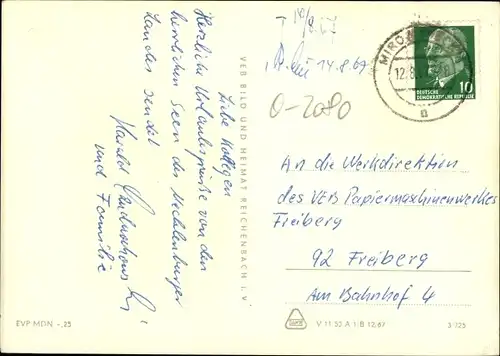 Liebe Kollegen
Herzliche Urlaubsgrüße von den
herrlichen Seen des Mecklenburger
Landes sendet
Harald
und Familie
VEB BILD UND HEIMAT REICHENBACH i. V.
EVP MDN -,25
14.8.69
O-2080
MIRO
12.8.
a
10
DEUTSCHE
DEMOKRATISCHE REPUBLIK
An die Werkdirektion
des VEB Papiermaschinenwerkes
Freiberg
92 Freiberg
Am Bahnhof 4
V 11 53 A 1/B 12/67
3/725